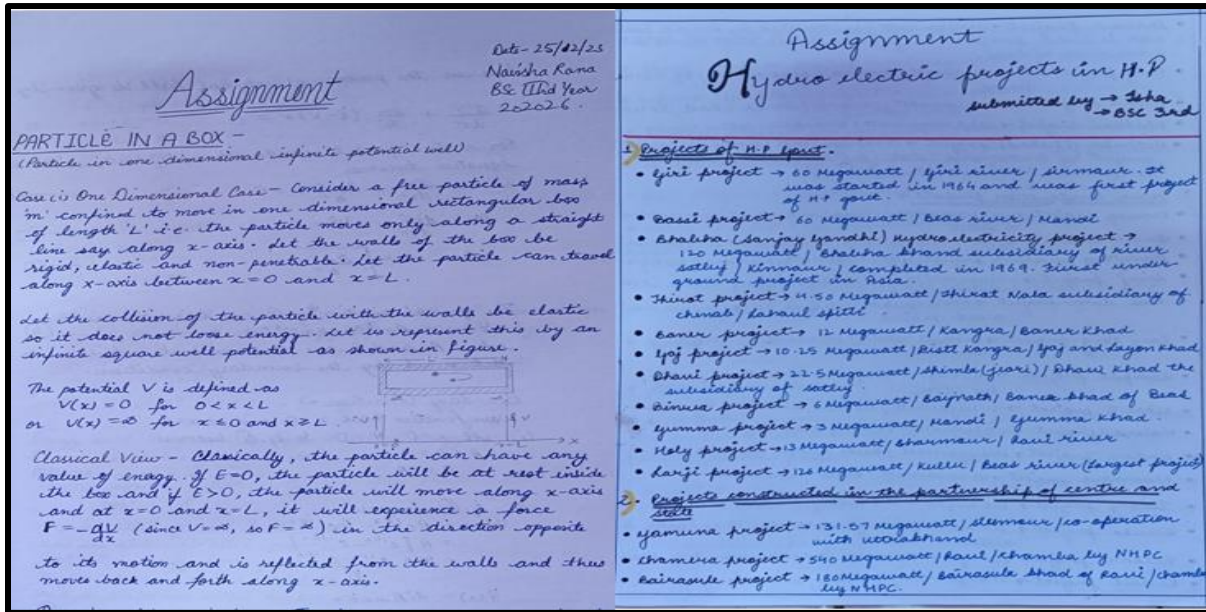 Date - 25/12/23
Naisha Rana
BSc IIIrd Year
202026.
Assignment
PARTICLE IN A BOX -
(Particle in one dimensional infinite potential well)
Case (i) One Dimensional Case - Consider a free particle of mass
'm' confined to move in one dimensional rectangular box
of length 'L' i.e. the particle moves only along a straight
line say along x-axis. Let the walls of the box be
rigid, elastic and non-penetrable. Let the particle can travel
along x-axis between x=0 and x=L.
Let the collision of the particle with the walls be elastic
so it does not loose energy. Let us represent this by an
infinite square well potential as shown in figure.
The potential V is defined as
V(x) = 0 for 0<x<L
or V(x) = ∞ for x≤0 and x≥L.
x
Classical View - Classically, the particle can have any
value of energy. If E=0, the particle will be at rest inside
the box and if E>0, the particle will move along x-axis
and at x=0 and x=L, it will expeience a force
F = -dV/dx (since V=∞, so F=∞) in the direction opposite
to its motion and is reflected from the walls and thus
moves back and forth along x-axis.
Assignment
Hydro electric projects in H.P.
submitted by → Isha
→ BSC 3rd
1. Projects of H.P Govt.
• Giri project → 60 Megawatt / Giri river / Sirmaur. It
was started in 1964 and was first project
of H.P govt.
• Bassi project → 60 Megawatt / Beas river / Mandi
• Bhabha (Sanjay Gandhi) Hydroelectricity project →
120 Megawatt / Bhabha khand subsidiary of river
satluj / Kinnaur / completed in 1969. First under-
ground project in Asia.
• Thirot project → 4.50 Megawatt / Thirot Nala subsidiary of
chenab / Lahaul spiti
• Baner project → 12 Megawatt / Kangra / Baner Khad
• Gaj project → 10.25 Megawatt / Distt Kangra / Gaj and Layon Khad
• Dhavi project → 22.5 Megawatt / Shimla (jeori) / Dhavi Khad the
subsidiary of satluj
• Binwa project → 6 Megawatt / Baijnath / Baner khad of Beas
• Gumma project → 3 Megawatt / Mandi / Gumma Khad.
• Holy project → 13 Megawatt / Bharmour / Ravi river
• Larji project → 126 Megawatt / Kullu / Beas river (Largest project)
2. Projects constructed in the partnership of centre and
state
• Yamuna project → 131.57 Megawatt / Sirmour / co-operation
with uttrakhand
• Chamera project → 540 Megawatt / Ravi / Chamba by NHPC
• Bairasule project → 180 Megawatt / Bairasule khad of Ravi / Chamba
by NHPC.